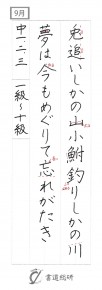 9月
兎追いしかの山小鮒釣りしかの川
夢は今もめぐりて忘れがたき
中一二三 一級~十級
書道総研